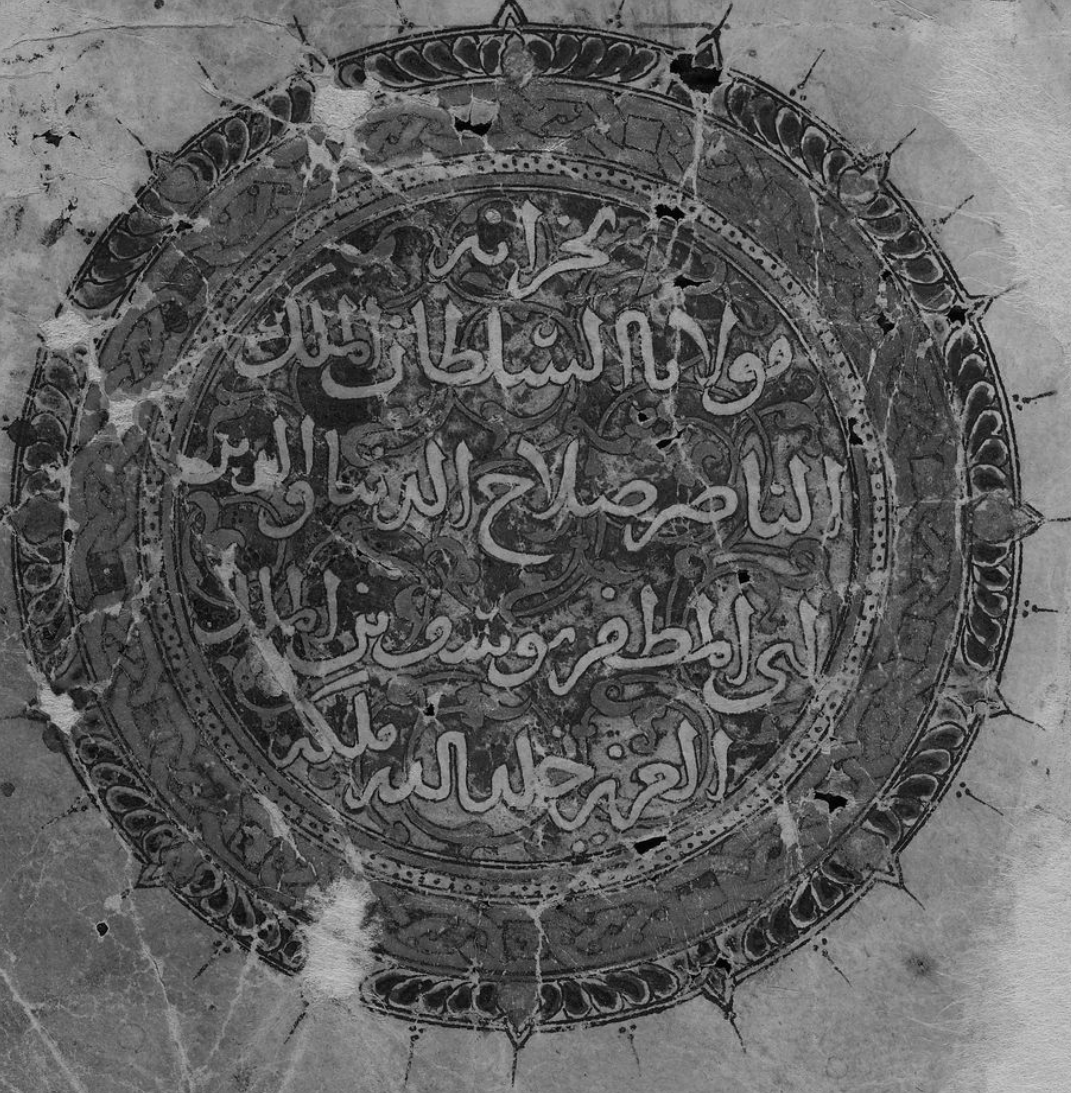 بخزانه
مولانا السلطان الملك
الناصر صلاح الدنيا والدين
ابى المظفر يوسف بن الملك
العزيز خلد الله ملكه